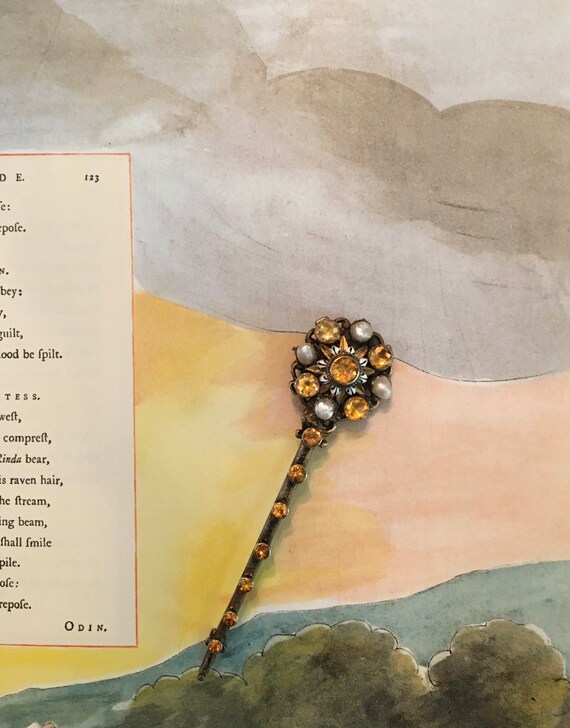 D E. 123
ſe:
epoſe.
N.
bey:
,
guilt,
lood be ſpilt.
T E S S.
weſt,
compreſt,
Rinda bear,
is raven hair,
he ſtream,
ing beam,
ſhall ſmile
pile.
oſe:
repoſe.
ODIN.